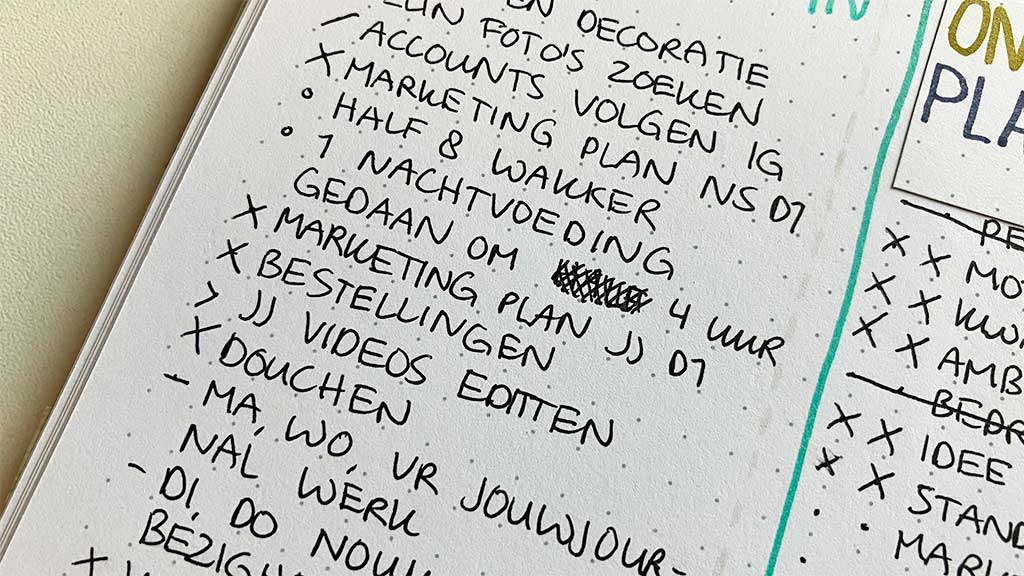 EN DECORATIE
FOTO'S ZOEKEN
/ ACCOUNTS VOLGEN IG
X MARKETING PLAN NS D1
• HALF 8 WAKKER
• 1 NACHTVOEDING
GEDAAN OM 4 UUR
X MARKETING PLAN JJ D1
X BESTELLINGEN
> JJ VIDEOS EDITTEN
X DOUCHEN
- MA, WO, VR JOUWJOUR-
NAL WERK
- DI, DO
BEZIG
IN
ON
PLA
X X MO
X X
X X AMB
- BEDR
X X IDEE
X X STAND
• • MAR